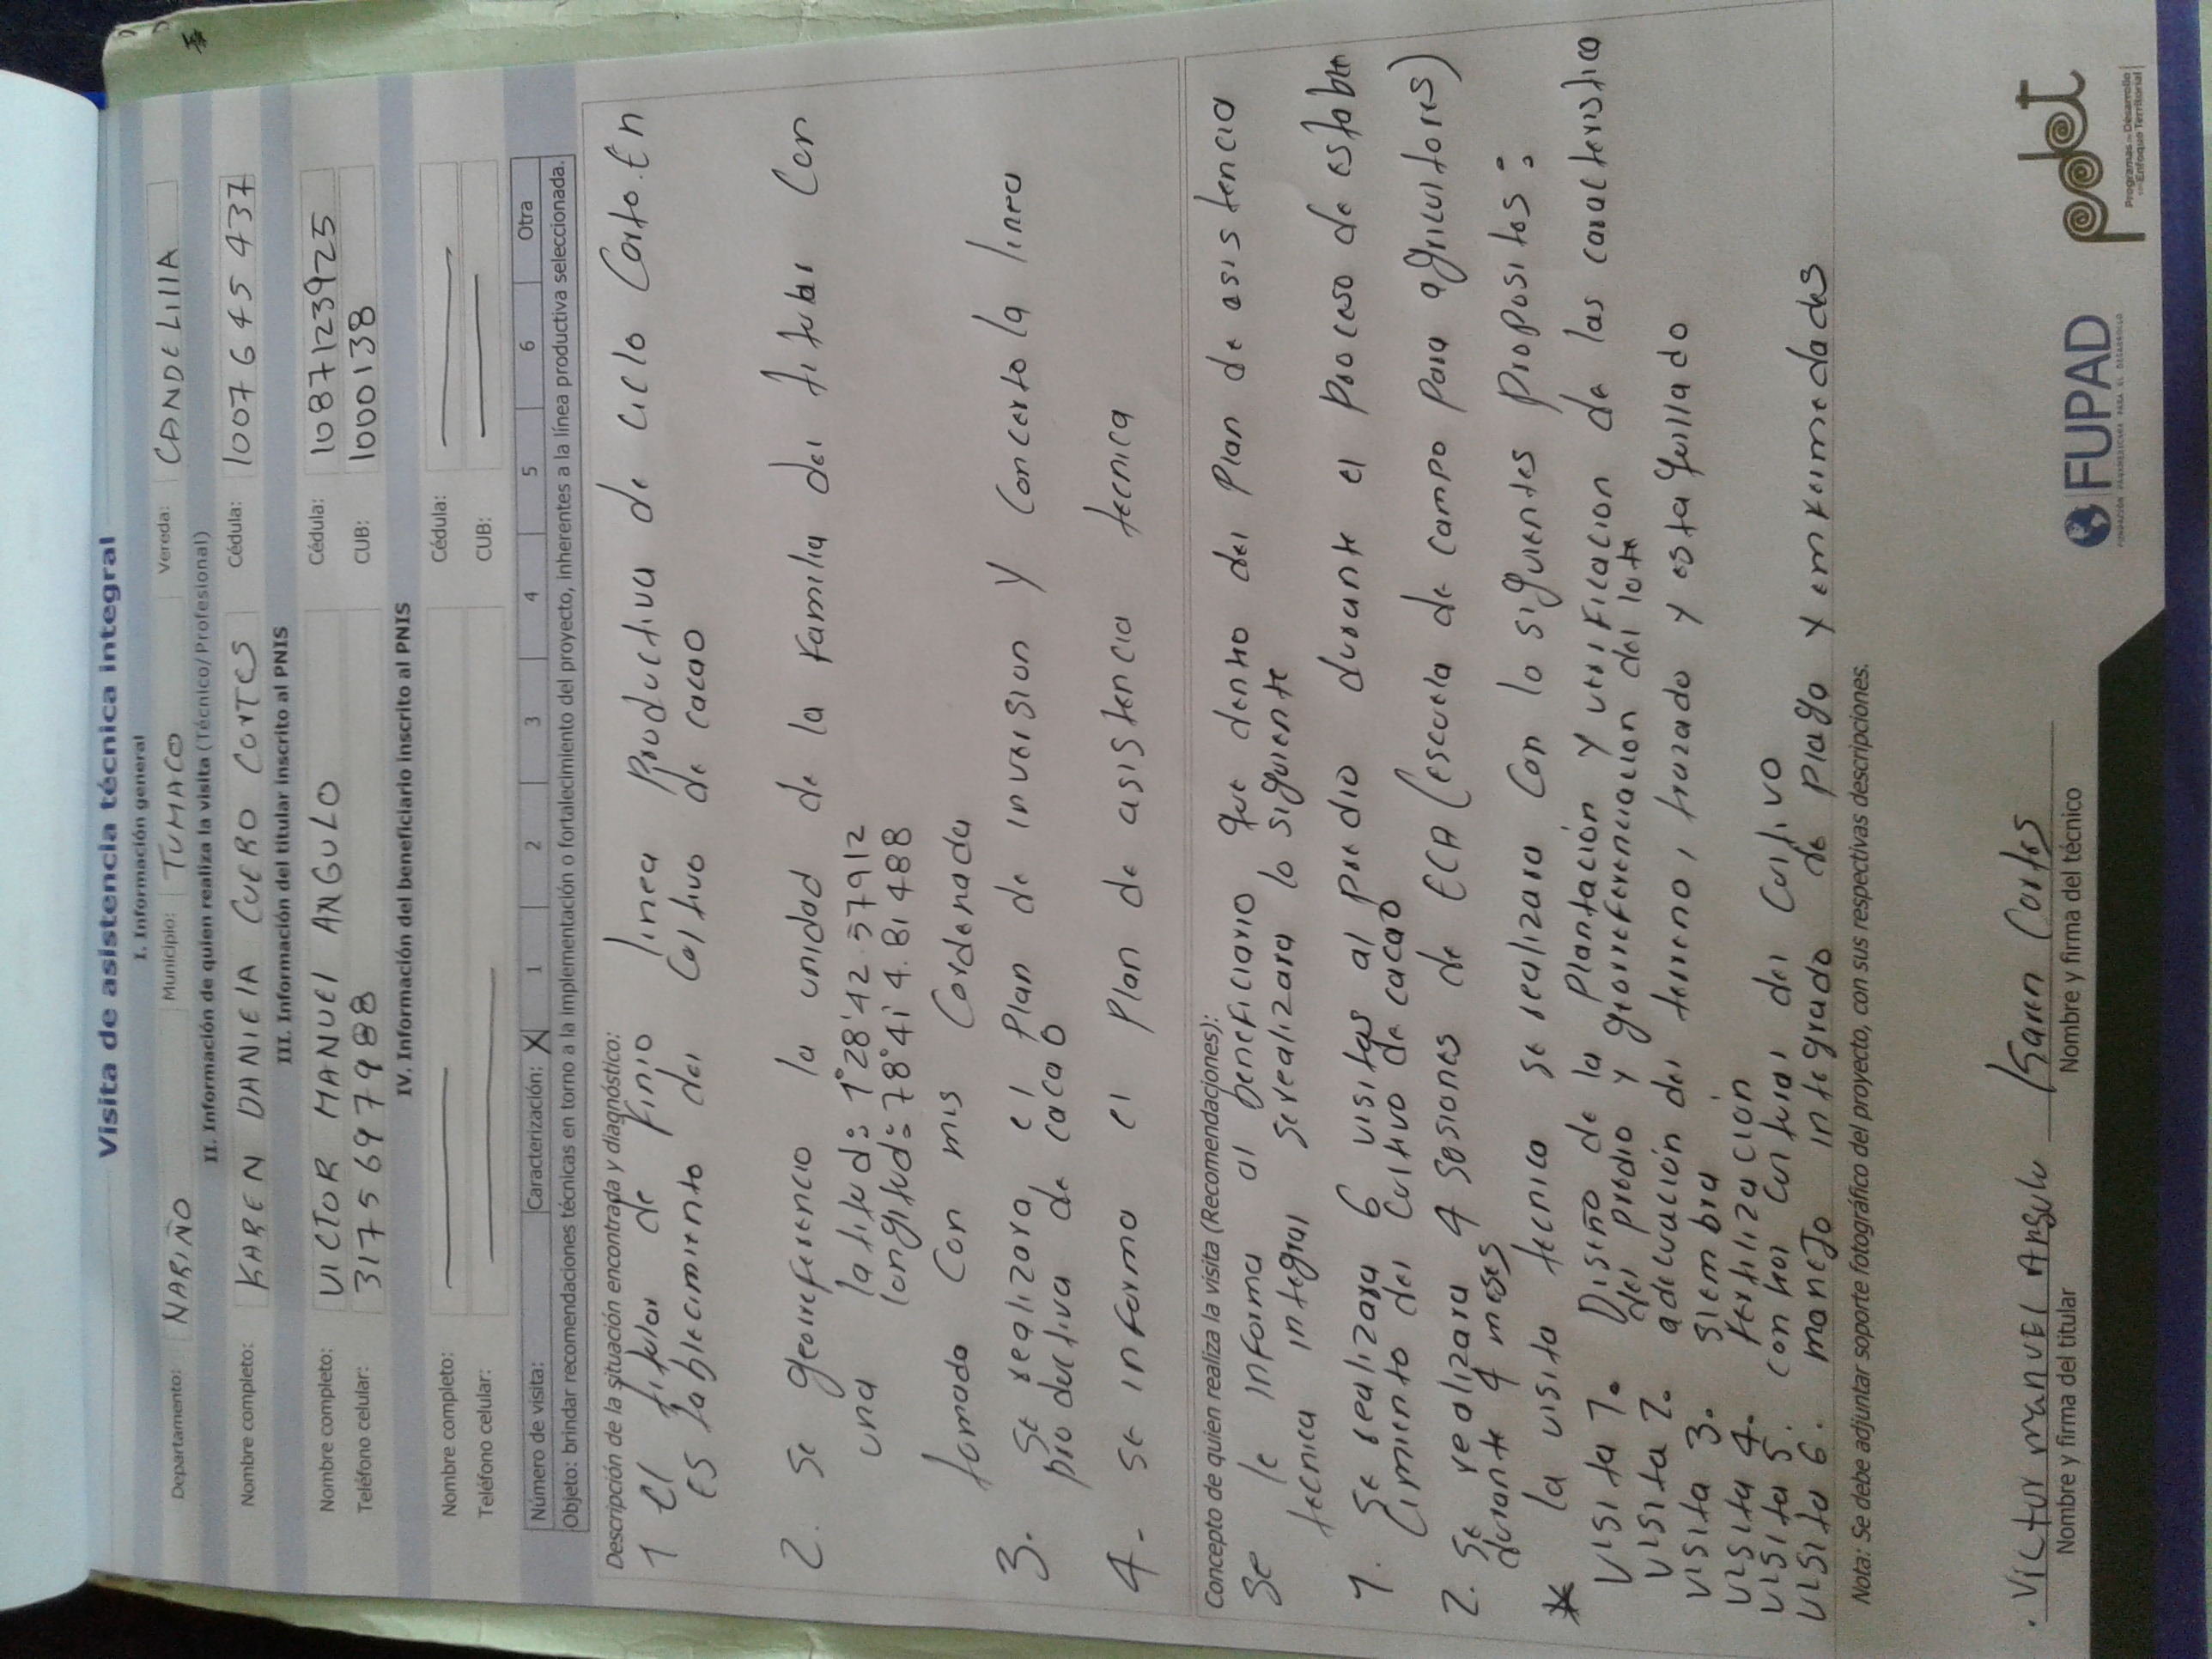 Visita de asistencia técnica integral
I. Información general
Departamento: NARIÑO Municipio: TUMACO Vereda: CANDELILLA
II. Información de quien realiza la visita (Técnico/Profesional)
Nombre completo: KAREN DANIELA CUERO CORTES Cédula: 1007645437
III. Información del titular inscrito al PNIS
Nombre completo: VICTOR MANUEL ANGULO Cédula: 1087123925
Teléfono celular: 3175697988 CUB: 1000138
IV. Información del beneficiario inscrito al PNIS
Nombre completo: Cédula:
Teléfono celular: CUB:
Número de visita: Caracterización: X 1 2 3 4 5 6 Otra
Objeto: brindar recomendaciones técnicas en torno a la implementación o fortalecimiento del proyecto, inherentes a la línea productiva seleccionada.
Descripción de la situación encontrada y diagnóstico:
1 El titular de finio linea productiva de ciclo Corto. En
Es tablecimiento del Coltivo de cacao
2. se georreferencio la unidad de la familia del titular Con
una latitud: 1°28'42.37912
longitud: 78°41'4.81488
tomada con mis Cordenada
3. se realizara el Plan de inversion y Concerto la linea
productiva de cacao
4- se informa el plan de asistencia tecnica
Concepto de quien realiza la visita (Recomendaciones):
se le informa al beneficiario que dentro del Plan de asistencia
tecnica integral se realizara lo siguiente
1. se realizara 6 visitas al predio durante el proceso de estable
Cimiento del Cultivo de cacao
2. se realizara 4 sesiones de ECA (escuela de campo para agricultores)
durante 4 meses
* la visita tecnica se realizara Con lo siguientes propositos:
visita 1. Diseño de la plantación y verificacion de las caracteristica
del predio y georreferenciacion del lote
visita 2. adecuación del terreno, trazado y estaquillado
visita 3. siembra
visita 4. fertilización
visita 5. control cultural del cultivo
visita 6. manejo integrado de plaga y enfermedades
Nota: Se debe adjuntar soporte fotográfico del proyecto, con sus respectivas descripciones.
Victor manuel Angulo Karen Cortes
Nombre y firma del titular Nombre y firma del técnico
FUPAD
FUNDACIÓN PANAMERICANA PARA EL DESARROLLO
pdet
Programas de Desarrollo
con Enfoque Territorial